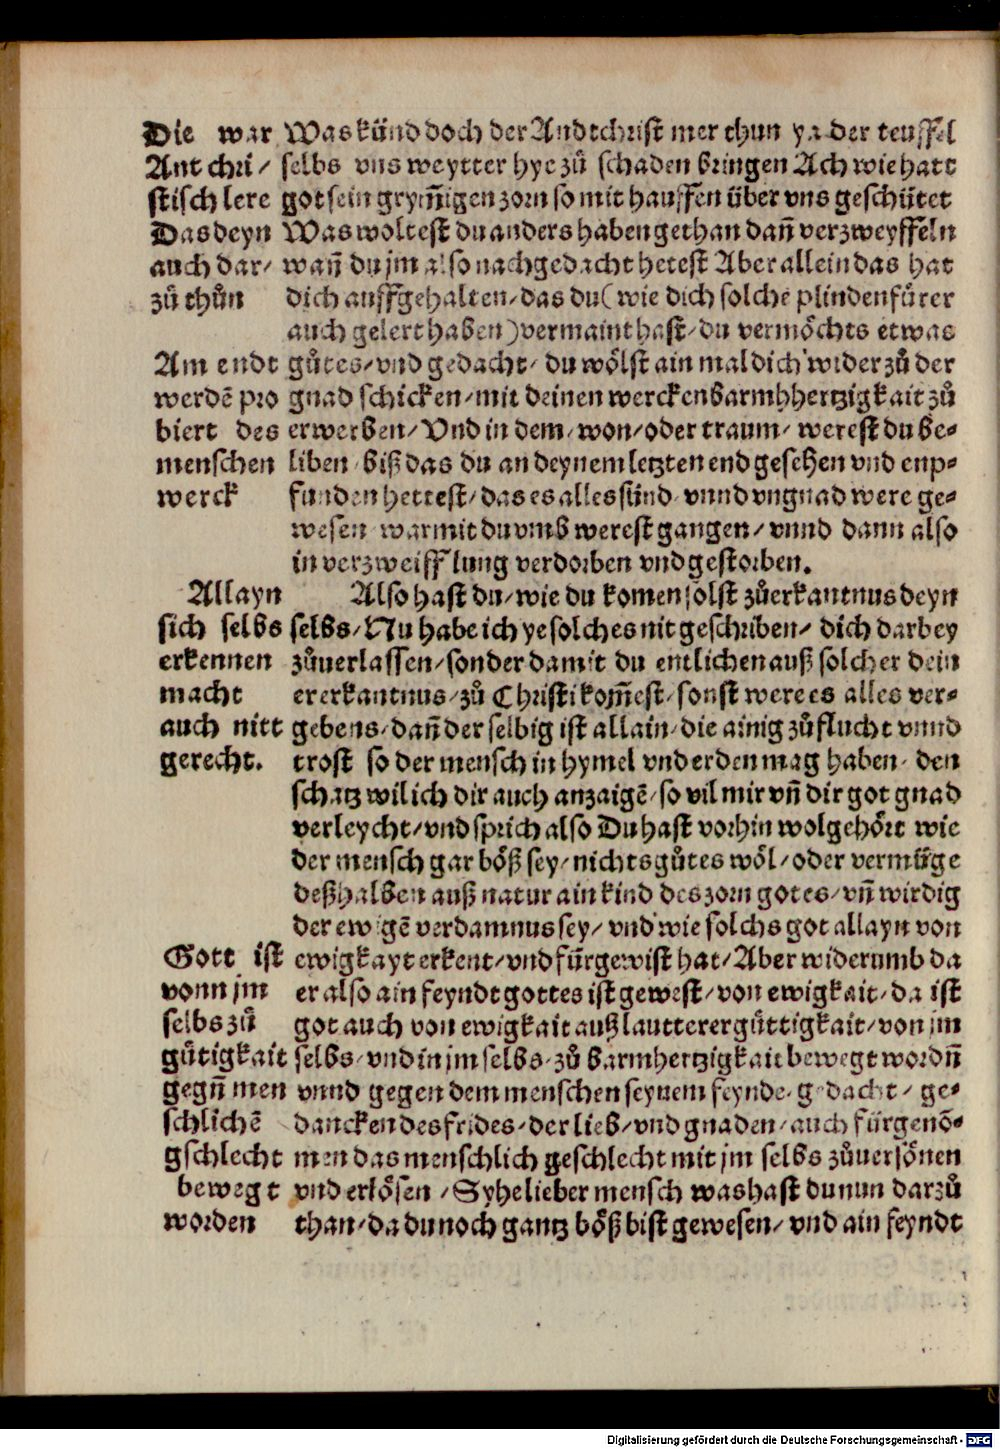 Die war
Antchri/
stisch lere
Das deyn
auch dar/
zů thůn
Am endt
werdē pro
biert des
menschen
werck
Allayn
sich selbs
erkennen
macht
auch nitt
gerecht.
Gott ist
vonn jm
selbs zů
gůtigkait
gegn̄ men
schlichē
gschlecht
bewegt
worden
Was künd doch der Andtchrist mer thun ya der teuffel
selbs vns weytter hye zů schaden bringen Ach wie hatt
got sein grym̄igen zorn so mit hauffen über vns geschütet
Was woltest du anders haben gethan dan̄ verzweyffeln
wan̄ du jm also nachgedacht hetest Aber allein das hat
dich auffgehalten/ das du (wie dich solche plindenfürer
auch gelert haben) vermaint hast/ du vermöchts etwas
gůtes/ vnd gedacht/ du wölst ain mal dich wider zů der
gnad schicken/ mit deinen wercken barmhhertzigkait zů
erwerben/ Vnd in dem/ won/ oder traum/ werest du be-
liben/ biß das du an deynem letzten end gesehen vnd enp-
funden hettest/ das es alles sünd/ vnnd vngnad were ge-
wesen/ warmit du vmb werest gangen/ vnnd dann also
in verzweifflung verdorben vnd gestorben.
Also hast du/ wie du komen solst zů erkantnus deyn
selbs/ Nu habe ich ye solches nit geschriben/ dich darbey
zůuerlassen/ sonder damit du entlichen auß solcher dein
er erkantnus/ zů Christi kom̄est/ sonst were es alles ver-
gebens/ dan̄ der selbig ist allain/ die ainig zůflucht vnnd
trost so der mensch in hymel vnd erden mag haben/ den
schatz wil ich dir auch anzaigē/ so vil mir vn̄ dir got gnad
verleycht/ vnd sprich also Du hast vorhin wol gehört wie
der mensch gar böß sey/ nichts gůtes wöl/ oder vermüge
deßhalben auß natur ain kind des zorn gotes/ vn̄ wirdig
der ewigē verdamnus sey/ vnd wie solchs got allayn von
ewigkayt erkent/ vnd fürgewist hat/ Aber widerumb da
er also ain feyndt gottes ist gewest/ von ewigkait/ da ist
got auch von ewigkait auß lautterer gůttigkait/ von jm
selbs/ vnd in jm selbs/ zů barmhertzigkait bewegt wordn̄
vnnd gegen dem menschen seynem feynde/ gedacht/ ge-
dancken des frides/ der lieb/ vnd gnaden/ auch fürgenō-
men das menschlich geschlecht mit jm selbs zůuersönen
vnd erlösen/ Syhe lieber mensch was hast du nun darzů
than/ da du noch gantz böß bist gewesen/ vnd ain feyndt
Digitalisierung gefördert durch die Deutsche Forschungsgemeinschaft - DFG